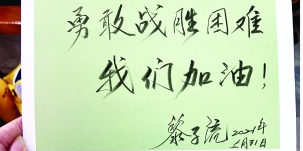 勇敢战胜困难
我们加油！
黎子流
2021年
5月31日